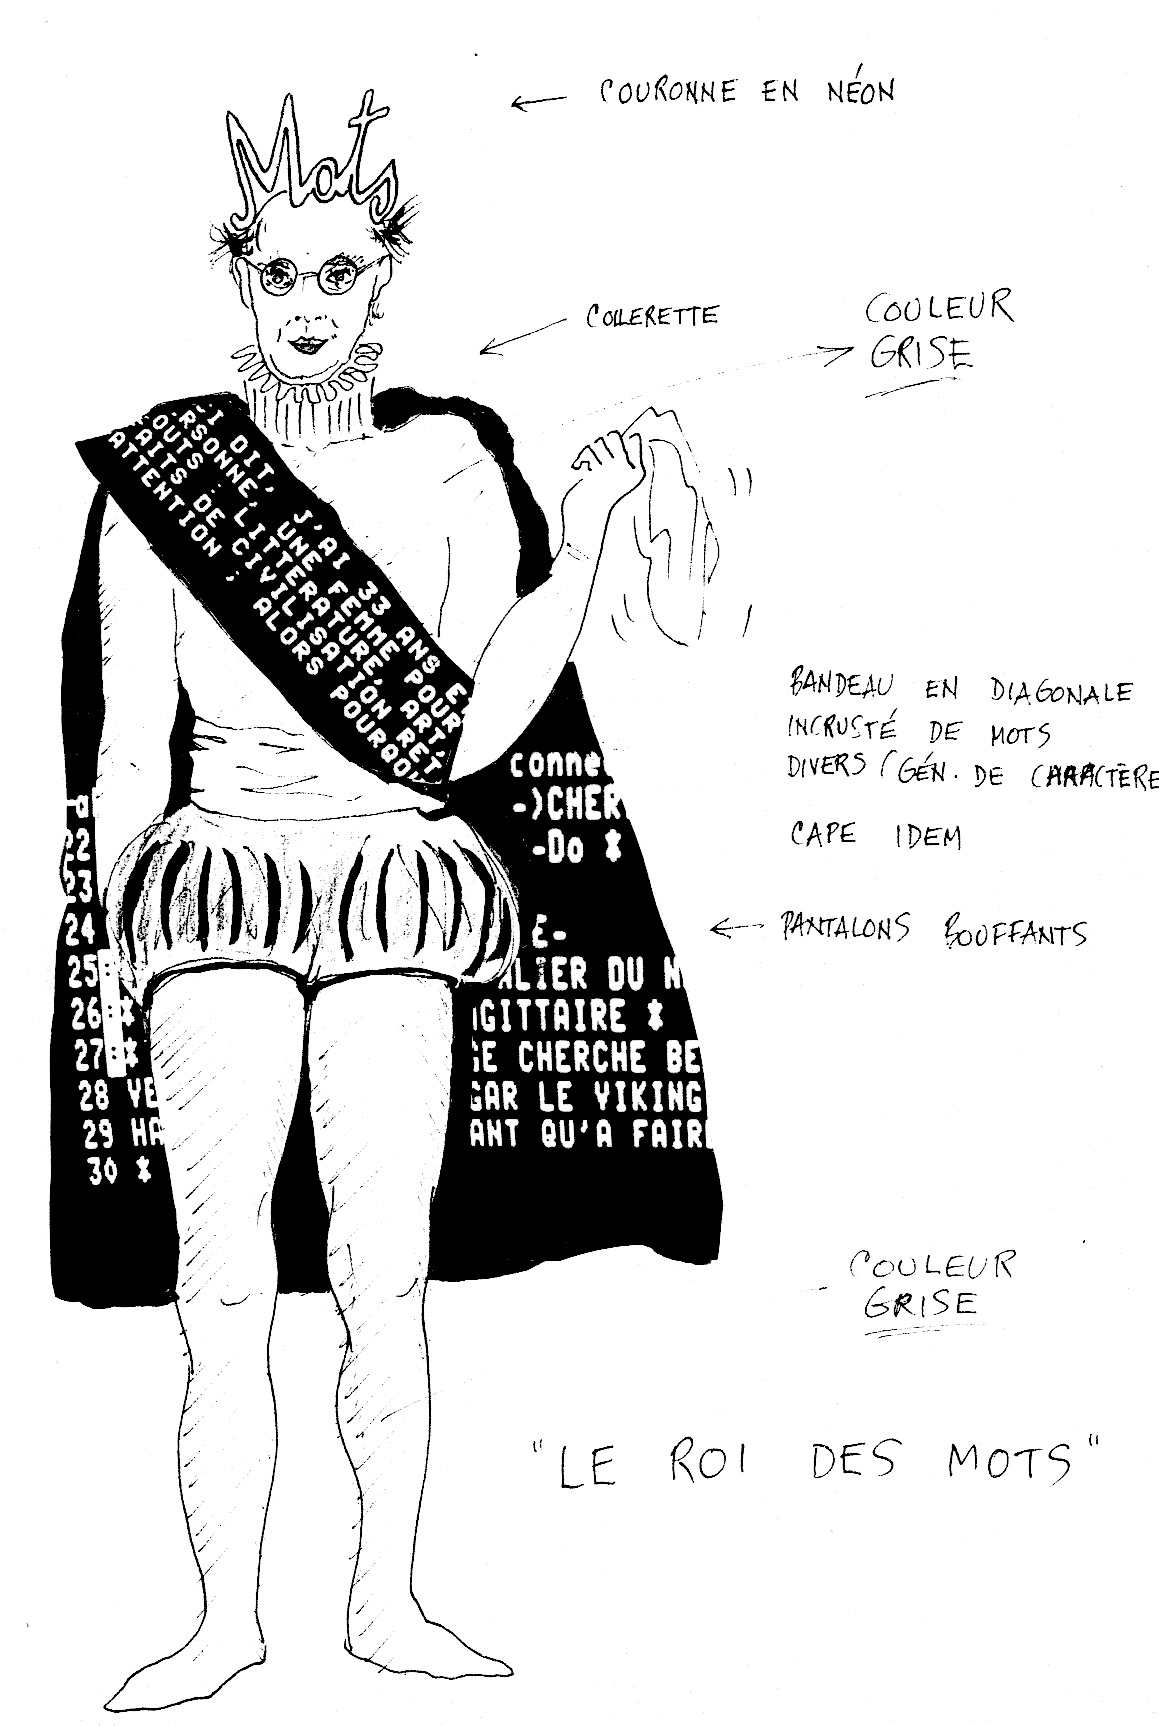 Mots
← COURONNE EN NÉON
← COLLERETTE
COULEUR
GRISE
I DIT, J'AI 33 ANS E
RSONNE, UNE FEMME POUR
OUTS : LITTERATURE, ART,
AITS DE CIVILISATION RET
ATTENTION ; ALORS POURQOU
BANDEAU EN DIAGONALE
INCRUSTÉ DE MOTS
DIVERS / GÉN. DE CARACTÈRE
CAPE IDEM
← PANTALONS BOUFFANTS
conne
-)CHER
22 -Do *
23
24 E-
25 ALIER DU N
26 * GITTAIRE *
27 * E CHERCHE BE
28 VE GAR LE VIKING
29 HA ANT QU'A FAIR
30 *
COULEUR
GRISE
"LE ROI DES MOTS"